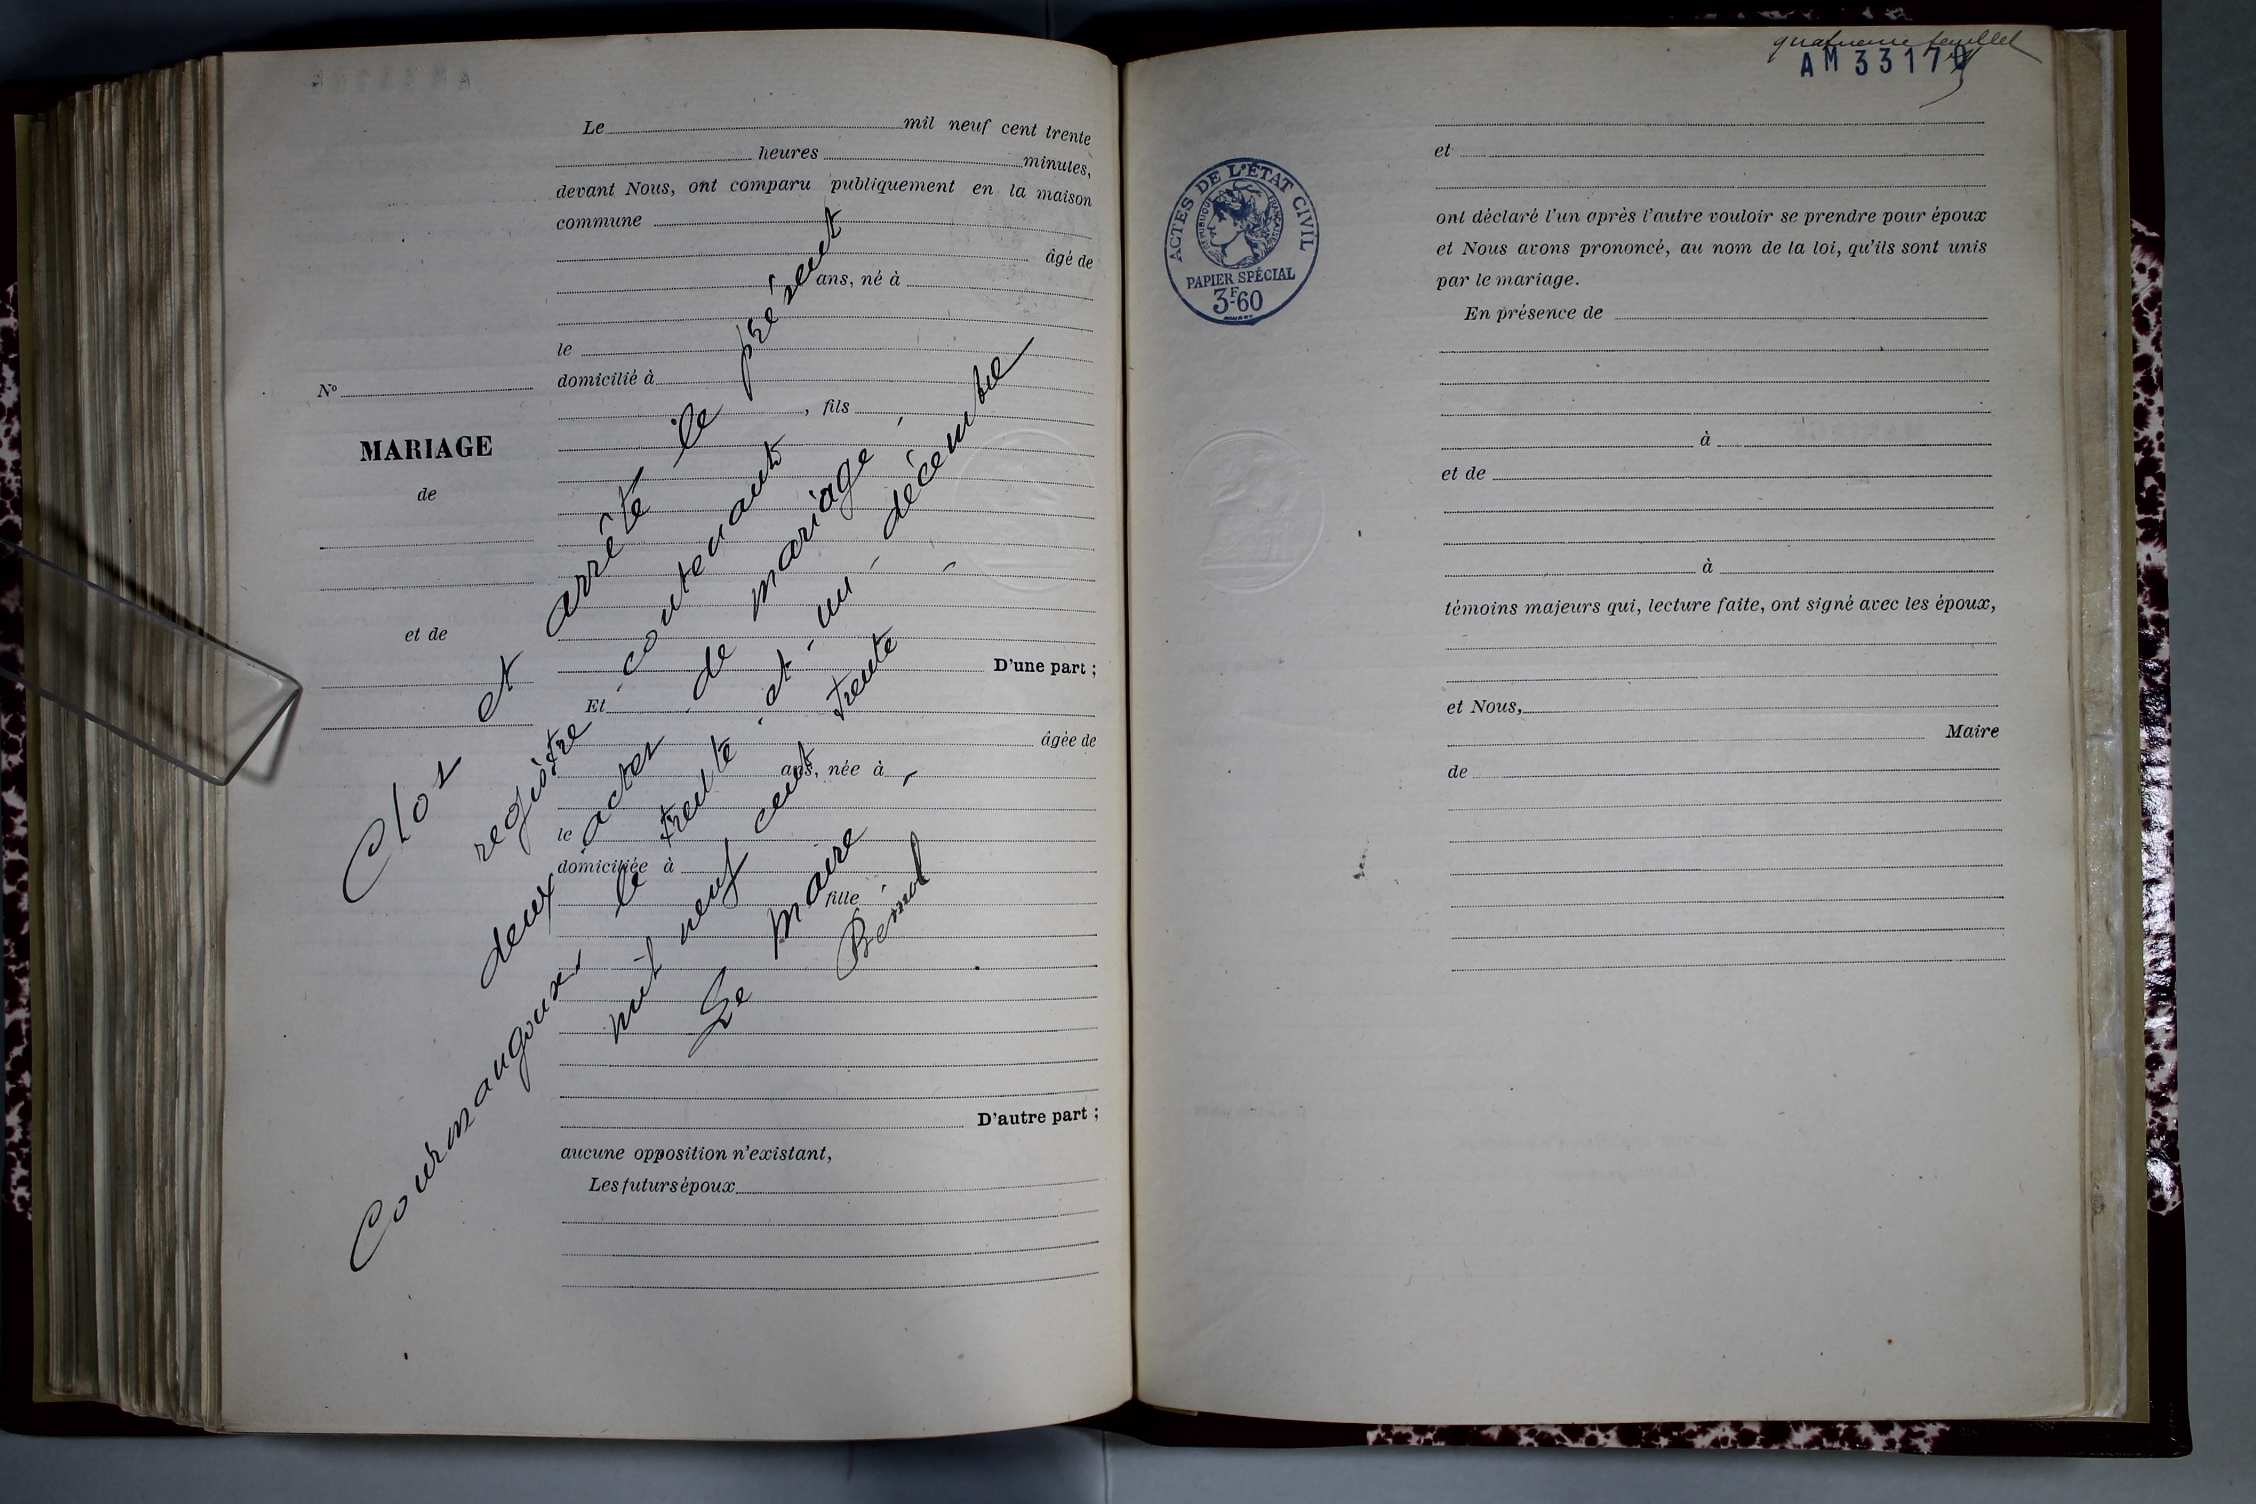 Le mil neuf cent trente
heures minutes,
devant Nous, ont comparu publiquement en la maison
commune
âgé de
ans, né à
le
domicilié à
, fils
D'une part ;
Et
âgée de
ans, née à
le
domiciliée à
fille
D'autre part ;
aucune opposition n'existant,
Les futurs époux
No
MARIAGE
de
et de
Clos et arrêté le présent
registre contenant
deux actes de mariage
Courmangoux le trente et un décembre
mil neuf cent trente
Le Maire
feuillet
AM 3317
ACTES DE L'ÉTAT CIVIL
RÉPUBLIQUE FRANÇAISE
PAPIER SPÉCIAL
3F60
et
ont déclaré l'un après l'autre vouloir se prendre pour époux
et Nous avons prononcé, au nom de la loi, qu'ils sont unis
par le mariage.
En présence de
à
et de
à
témoins majeurs qui, lecture faite, ont signé avec les époux,
et Nous,
Maire
de